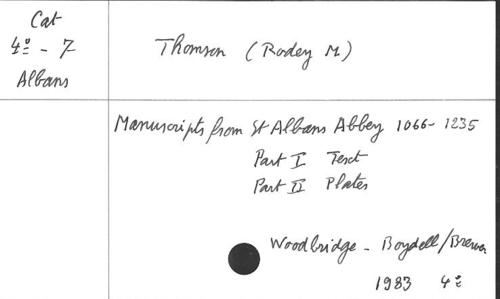 Cat
4º - 7
Albans
Thomson (Rodey M)
Manuscripts from St Albans Abbey 1066-1235
Part I Text
Part II Plates
Woodbridge - Boydell/Brewer
1983 4º